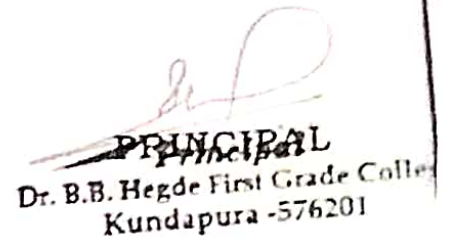 PRINCIPAL
Principal
Dr. B.B. Hegde First Grade Colle
Kundapura -576201